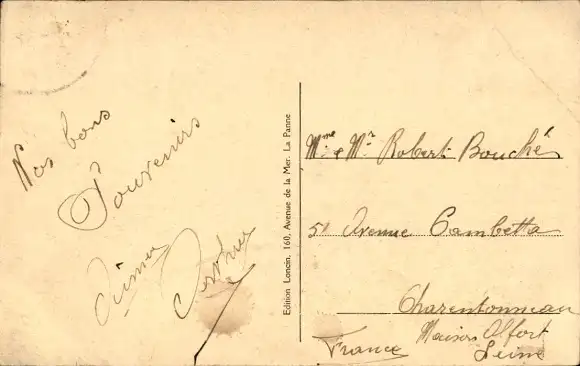 Nos bons
Souvenirs
Edition Loncin, 160, Avenue de la Mer, La Panne
Mme & Mr Robert Bouché
51 Avenue Gambetta
Charentonneau
Maisons Alfort
Seine
France